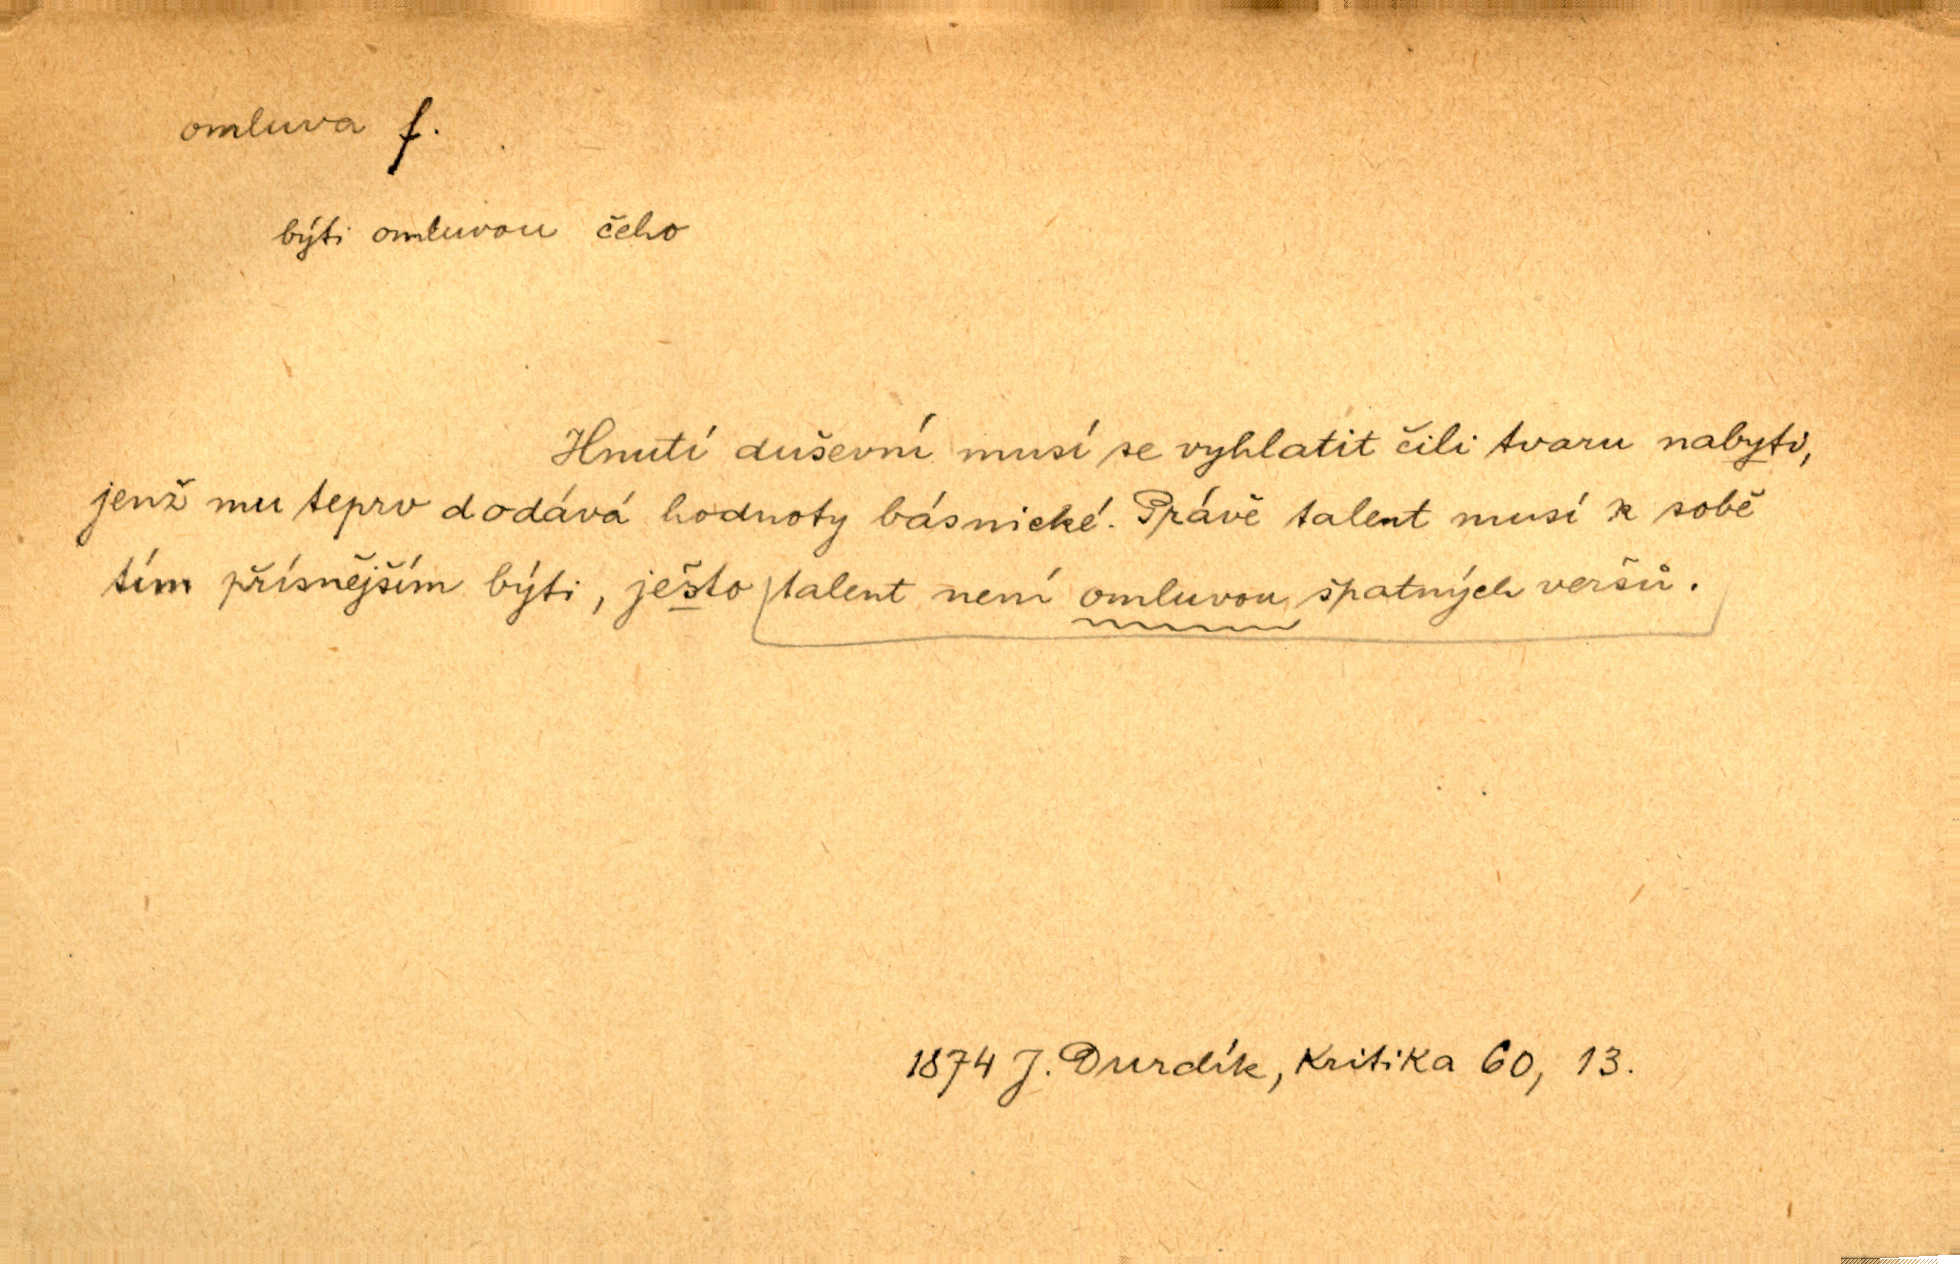 omluva f.
býti omluvou čeho
Hnutí duševní musí se vyhlatit čili tvaru nabyti,
jenž mu teprv dodává hodnoty básnické. Právě talent musí k sobě
tím přísnějším býti, ješto talent není omluvou špatných veršů.
1874 J. Durdík, Kritika 60, 13.